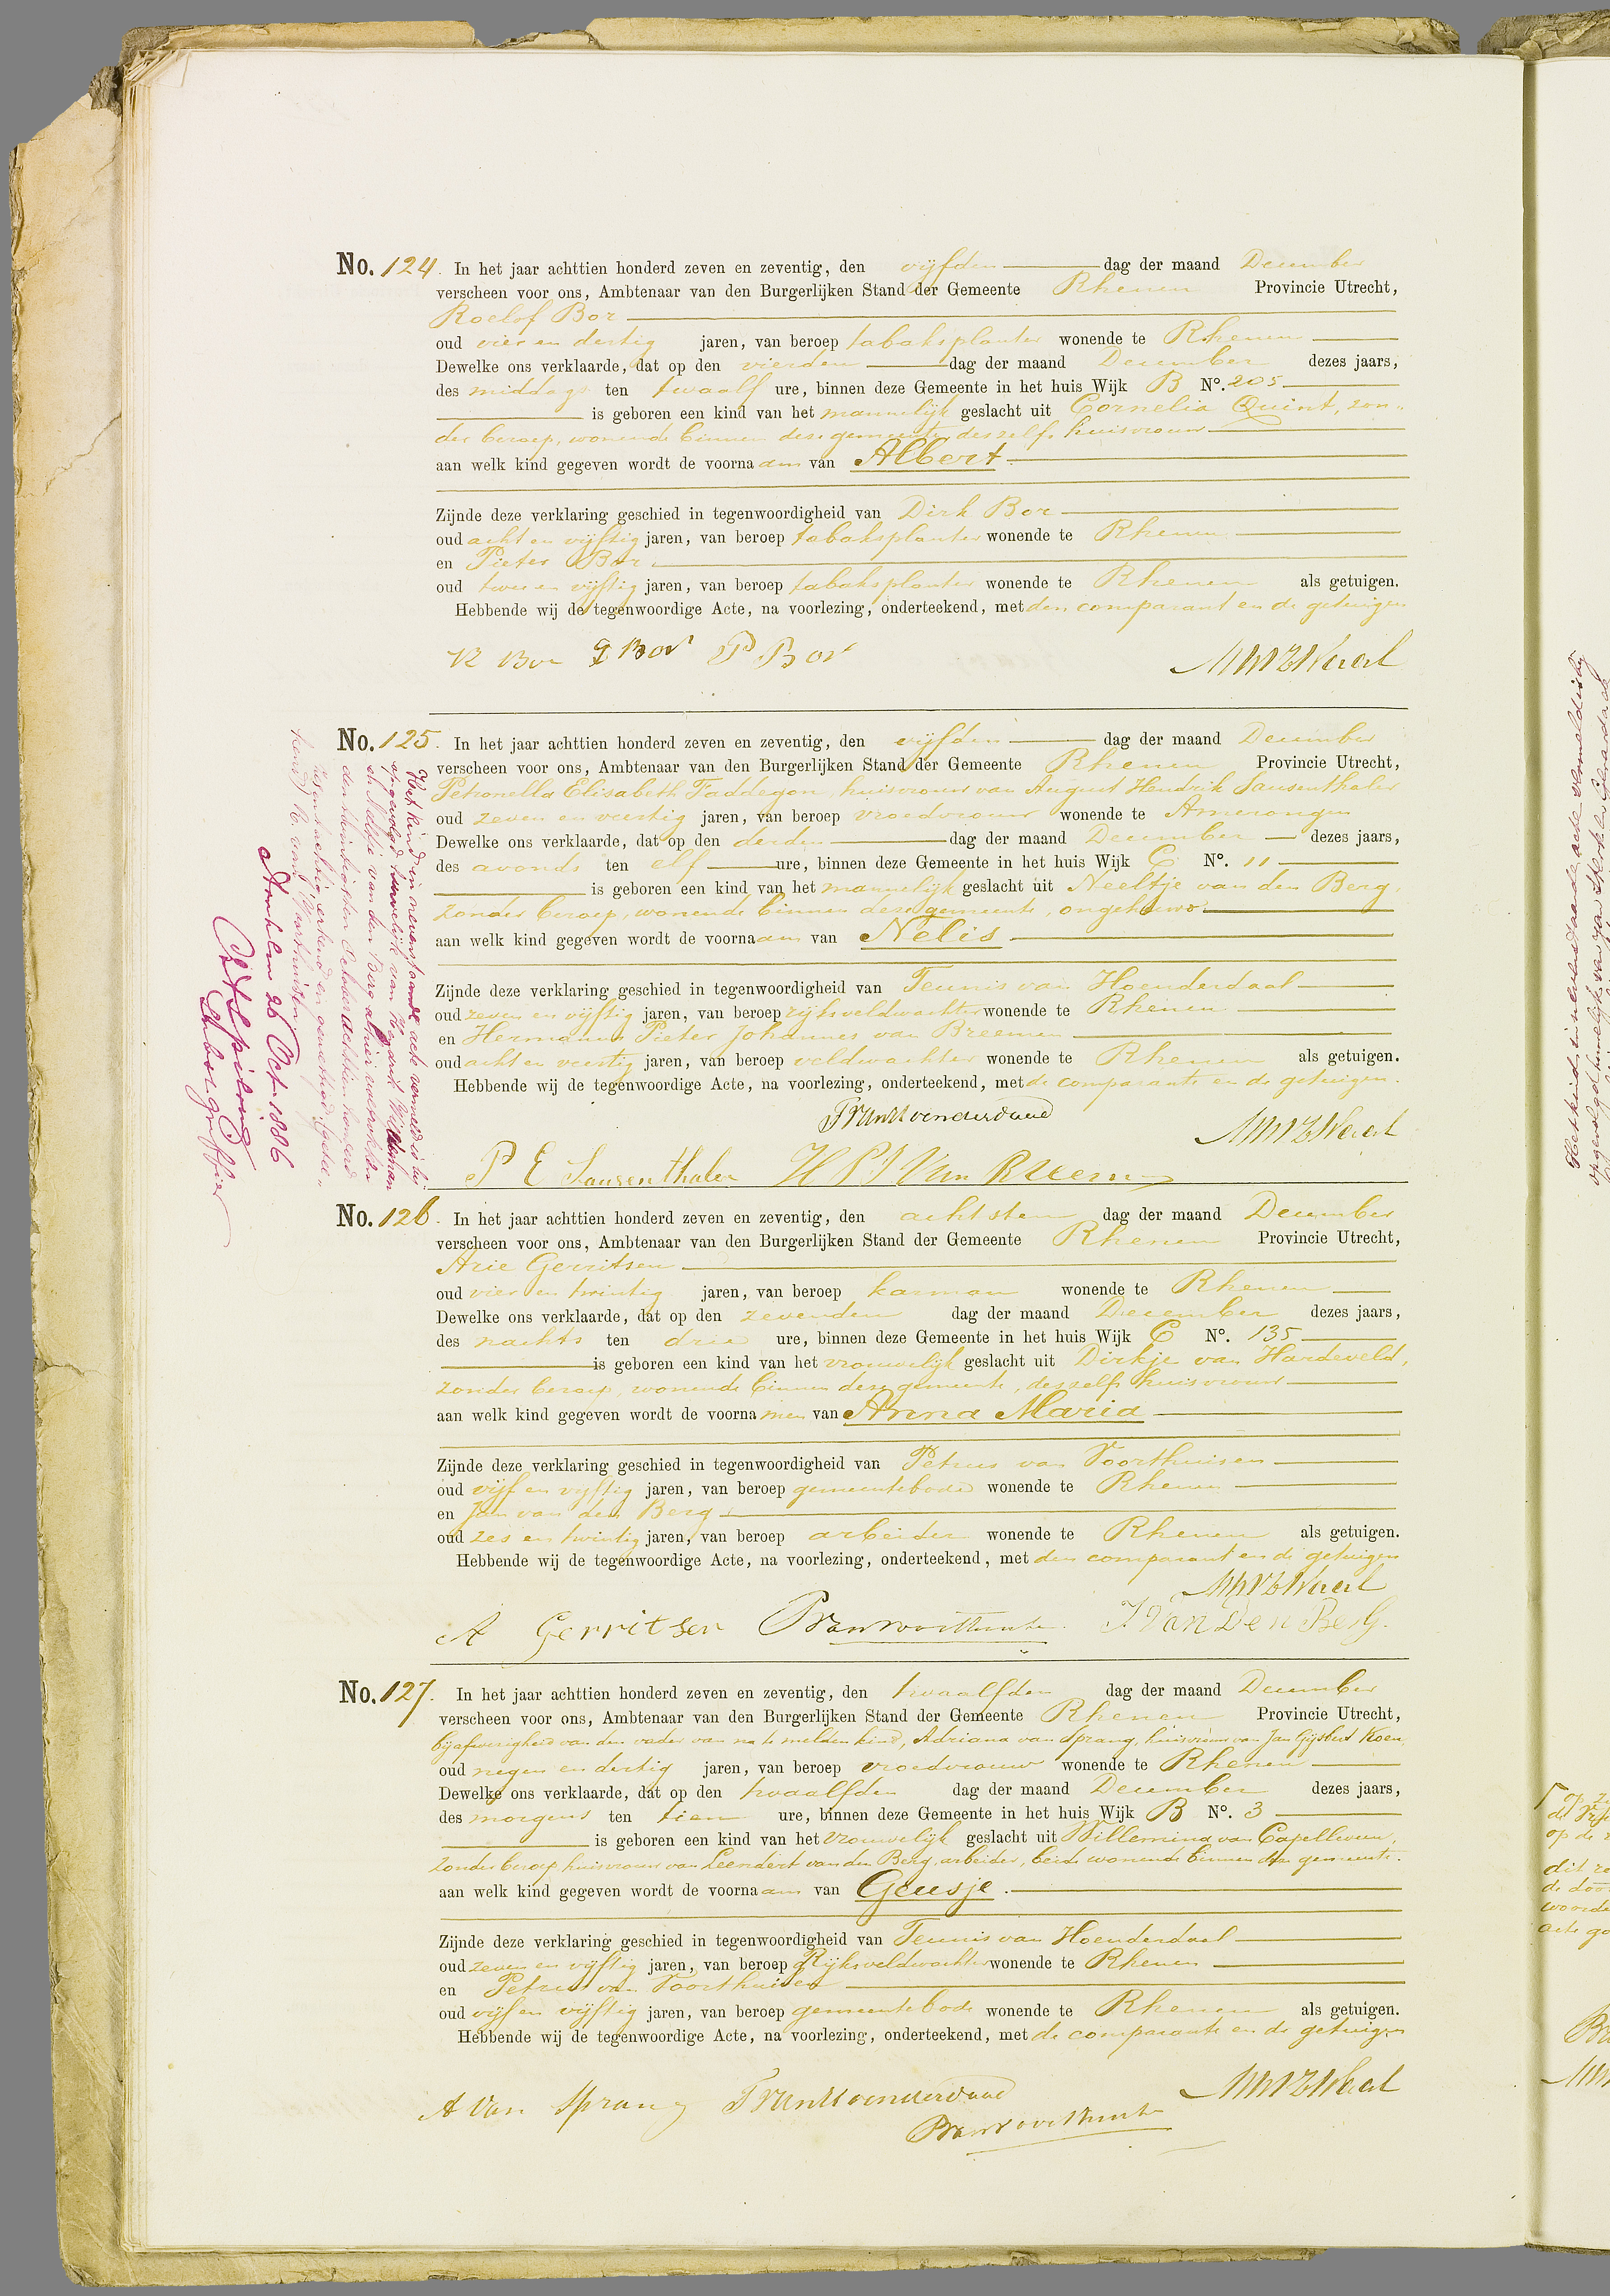 No. 124. In het jaar achttien honderd zeven en zeventig, den vijfden dag der maand December
verscheen voor ons, Ambtenaar van den Burgerlijken Stand der Gemeente Rhenen Provincie Utrecht,
Roelof Bor
oud vier en dertig jaren, van beroep tabaksplanter wonende te Rhenen
Dewelke ons verklaarde, dat op den vierden dag der maand December dezes jaars,
des middags ten twaalf ure, binnen deze Gemeente in het huis Wijk B No. 205
is geboren een kind van het mannelijk geslacht uit Cornelia Quint, zon-
der beroep, wonende binnen deze gemeente, deszelfs huisvrouw
aan welk kind gegeven wordt de voornaam van Albert
Zijnde deze verklaring geschied in tegenwoordigheid van Dirk Bor
oud acht en vijftig jaren, van beroep tabaksplanter wonende te Rhenen
en Pieter Bor
oud twee en vijftig jaren, van beroep tabaksplanter wonende te Rhenen als getuigen.
Hebbende wij de tegenwoordige Acte, na voorlezing, onderteekend, met den comparant en de getuigen
R Bor D Bor P Bor
No. 125. In het jaar achttien honderd zeven en zeventig, den vijfden dag der maand December
verscheen voor ons, Ambtenaar van den Burgerlijken Stand der Gemeente Rhenen Provincie Utrecht,
Petronella Elisabeth Faddegon, huisvrouw van August Hendrik Sausenthaler
oud zeven en veertig jaren, van beroep vroedvrouw wonende te Amerongen
Dewelke ons verklaarde, dat op den derden dag der maand December dezes jaars,
des avonds ten elf ure, binnen deze Gemeente in het huis Wijk C No. 11
is geboren een kind van het mannelijk geslacht uit Neeltje van den Berg,
zonder beroep, wonende binnen deze gemeente, ongehuwd
aan welk kind gegeven wordt de voornaam van Nelis
Zijnde deze verklaring geschied in tegenwoordigheid van Teunis van Hoenderdaal
oud zeven en vijftig jaren, van beroep rijksveldwachter wonende te Rhenen
en Hermanus Pieter Johannes van Breemen
oud acht en veertig jaren, van beroep veldwachter wonende te Rhenen als getuigen.
Hebbende wij de tegenwoordige Acte, na voorlezing, onderteekend, met de comparante en de getuigen.
T van Hoenderdaal
P E Sausenthaler H P J Van Breemen
Het kind in nevenstaande acte vermeld is bij
opgevolgd huwelijk van
Neeltje van den Berg alhier voltrokken
den October achttien honderd
zes en tachtig, erkend en gewettigd (getee-
kend)
Arnhem 26 Oct. 1886
griffier
No. 126. In het jaar achttien honderd zeven en zeventig, den achtsten dag der maand December
verscheen voor ons, Ambtenaar van den Burgerlijken Stand der Gemeente Rhenen Provincie Utrecht,
Arie Gerritsen
oud vier en twintig jaren, van beroep karman wonende te Rhenen
Dewelke ons verklaarde, dat op den zevenden dag der maand December dezes jaars,
des nachts ten drie ure, binnen deze Gemeente in het huis Wijk C No. 135
is geboren een kind van het vrouwelijk geslacht uit Dirkje van Hardeveld,
zonder beroep, wonende binnen deze gemeente, deszelfs huisvrouw
aan welk kind gegeven wordt de voornamen van Anna Maria
Zijnde deze verklaring geschied in tegenwoordigheid van Petrus van Voorthuisen
oud vijf en vijftig jaren, van beroep gemeentebode wonende te Rhenen
en Jan van den Berg
oud zes en twintig jaren, van beroep arbeider wonende te Rhenen als getuigen.
Hebbende wij de tegenwoordige Acte, na voorlezing, onderteekend, met den comparant en de getuigen
A Gerritsen P van Voorthuisen J Van Den Berg.
No. 127. In het jaar achttien honderd zeven en zeventig, den twaalfden dag der maand December
verscheen voor ons, Ambtenaar van den Burgerlijken Stand der Gemeente Rhenen Provincie Utrecht,
bij afwezigheid van den vader van na te melden kind, Adriana van Sprang, huisvrouw van Jan Gijsbert Koen,
oud negen en dertig jaren, van beroep vroedvrouw wonende te Rhenen
Dewelke ons verklaarde, dat op den twaalfden dag der maand December dezes jaars,
des morgens ten tien ure, binnen deze Gemeente in het huis Wijk B No. 3
is geboren een kind van het vrouwelijk geslacht uit Willemina van Capelleveen,
zonder beroep huisvrouw van Leendert van den Berg, arbeider, beide wonende binnen deze gemeente.
aan welk kind gegeven wordt de voornaam van Geusje.
Zijnde deze verklaring geschied in tegenwoordigheid van Teunis van Hoenderdaal
oud zeven en vijftig jaren, van beroep Rijksveldwachter wonende te Rhenen
en Petrus van Voorthuisen
oud vijf en vijftig jaren, van beroep gemeentebode wonende te Rhenen als getuigen.
Hebbende wij de tegenwoordige Acte, na voorlezing, onderteekend, met de comparante en de getuigen
A Van Sprang T van Hoenderdaal
P van Voorthuisen